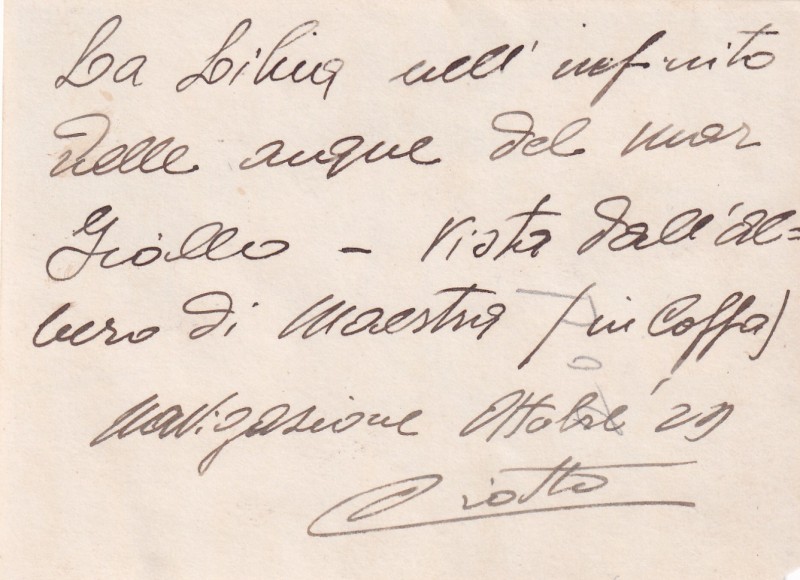 La Libia nell'infinito
nelle acque del mar
Giallo - vista dall'al=
bero di maestra (in Coffa)
Navigazione Ottobre '29